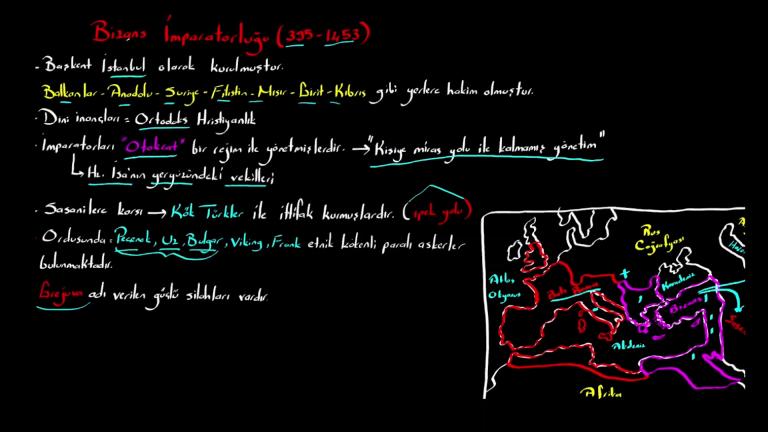 Bizans İmparatorluğu (395-1453)
- Başkent İstanbul olarak kurulmuştur.
Balkanlar - Anadolu - Suriye - Filistin - Mısır - Girit - Kıbrıs gibi yerlere hakim olmuştur.
- Dini inançları = Ortodoks Hristiyanlık
- İmparatorları "Otokrat" bir rejim ile yönetmişlerdir. → "Kişiye miras yolu ile kalmamış yönetim"
Hz. İsa'nın yeryüzündeki vekilleri
- Sasanilere karşı → Kök Türkler ile ittifak kurmuşlardır. (İpek yolu)
Ordusunda = Peçenek, Uz, Bulgar, Viking, Frank etnik kökenli paralı askerler
bulunmaktadır.
Grejuva adı verilen güçlü silahları vardır.
Rus
Coğrafyası
Atlas
Okyanus
Batı Roma
Karadeniz
Bizans
Akdeniz
Afrika